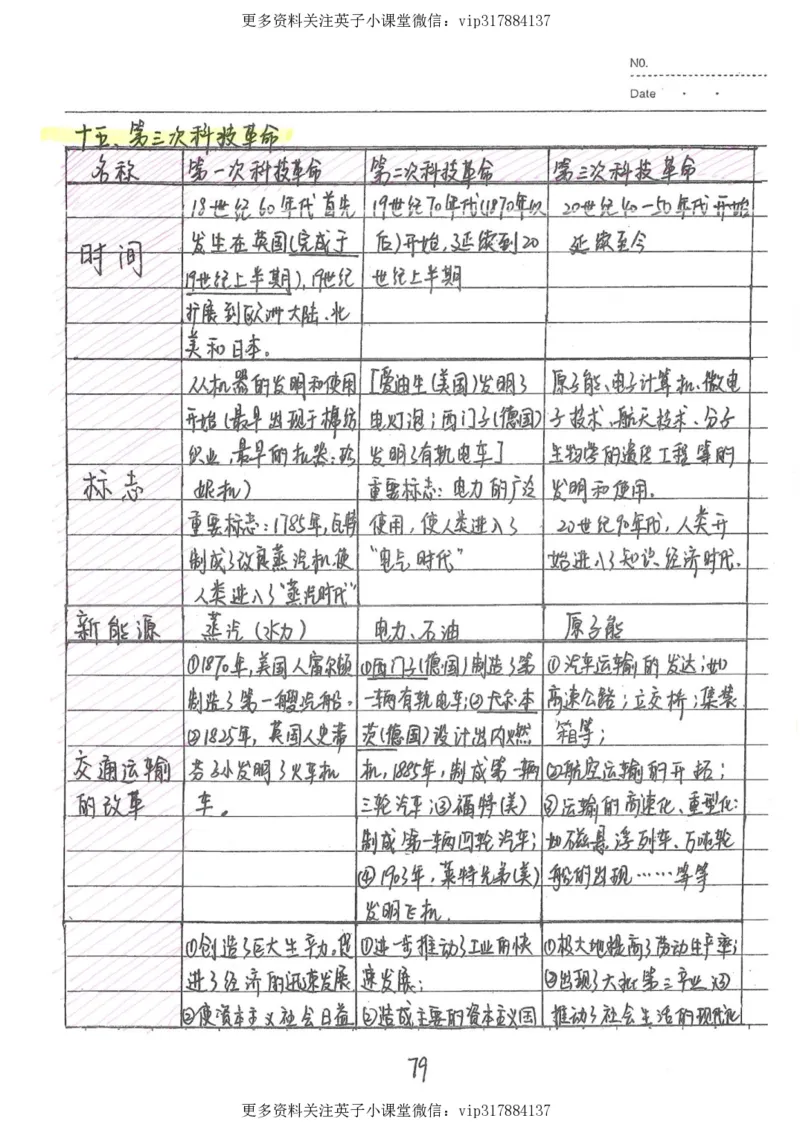 更多资料关注英子小课堂微信：vip317884137
NO.
Date
十五、第三次科技革命
名称 第一次科技革命 第二次科技革命 第三次科技革命
时间
18世纪60年代首先
发生在英国(完成于
19世纪上半期),19世纪
扩展到欧洲大陆、北
美和日本。
19世纪70年代(1870年以
后)开始,延续到20
世纪上半期
20世纪40-50年代开始
延续至今
标志
从机器的发明和使用
开始(最早出现于棉纺
织业,最早的机器:珍
妮机)
重要标志:1785年,瓦特
制成了改良蒸汽机,使
人类进入了"蒸汽时代"
[爱迪生(美国)发明了
电灯泡；西门子(德国)
发明了有轨电车]
重要标志:电力的广泛
使用,使人类进入了
"电气时代"
原子能、电子计算机、微电
子技术、航天技术、分子
生物学的遗传工程等的
发明和使用。
20世纪90年代,人类开
始进入了知识经济时代.
新能源 蒸汽(水力) 电力、石油 原子能
交通运输
的改革
①1870年,美国人富尔顿
制造了第一艘汽船。
②1825年,英国人史蒂
芬孙发明了火车机
车。
①西门子(德国)制造了第
一辆有轨电车;②卡尔·本
茨(德国)设计出内燃
机,1885年,制成第一辆
三轮汽车;③福特(美)
制成第一辆四轮汽车;
④1903年,莱特兄弟(美)
发明飞机.
①汽车运输的发达;如
高速公路;立交桥;集装
箱等;
②航空运输的开拓;
③运输的高速化、重型化:
如磁悬浮列车、万吨轮
船的出现……等等
①创造了巨大生产力,促
进了经济的迅速发展.
②使资本主义社会日益
①进一步推动了工业的快
速发展;
②造成主要的资本主义国
①极大地提高了劳动生产率;
②出现了大批第三产业 ③
推动了社会生活的现代化
79
更多资料关注英子小课堂微信：vip317884137